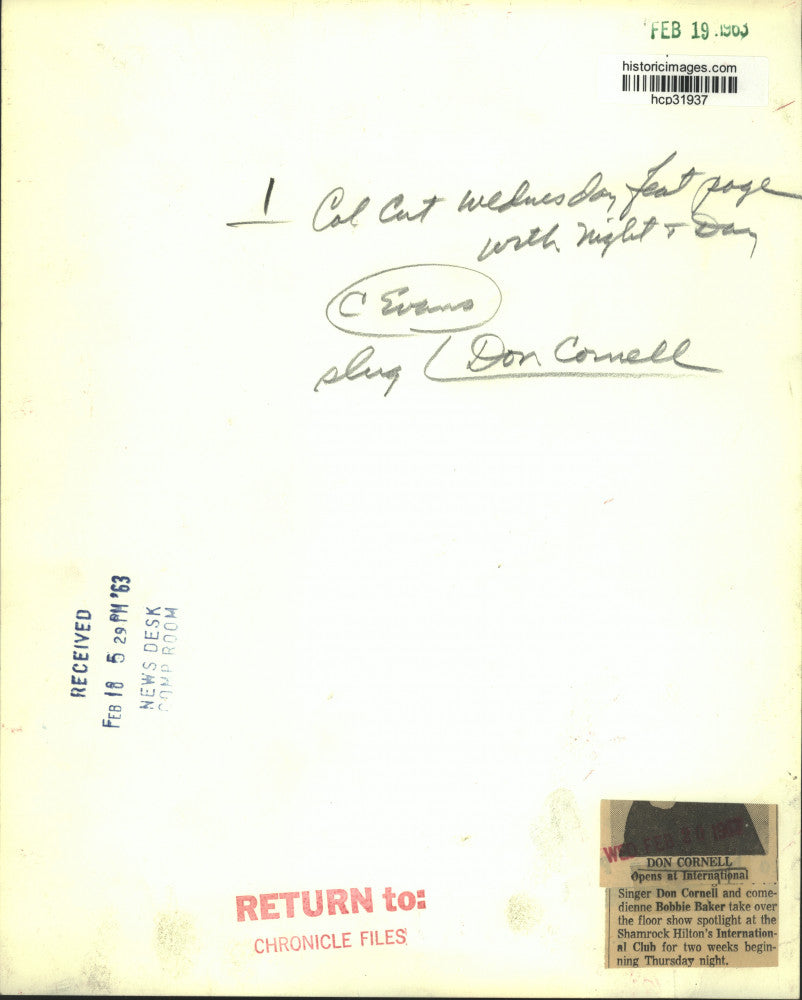 FEB 19 1963
historicimages.com
hcp31937
1 Col Cut Wednesday feat page
with Night + Day
C Evans
slug (Don Cornell
RECEIVED
FEB 18 5 29 PM '63
NEWS DESK
COMP ROOM
WED FEB 20 1963
DON CORNELL
Opens at International
Singer Don Cornell and come-
dienne Bobbie Baker take over
the floor show spotlight at the
Shamrock Hilton's Internation-
al Club for two weeks begin-
ning Thursday night.
RETURN to:
CHRONICLE FILES